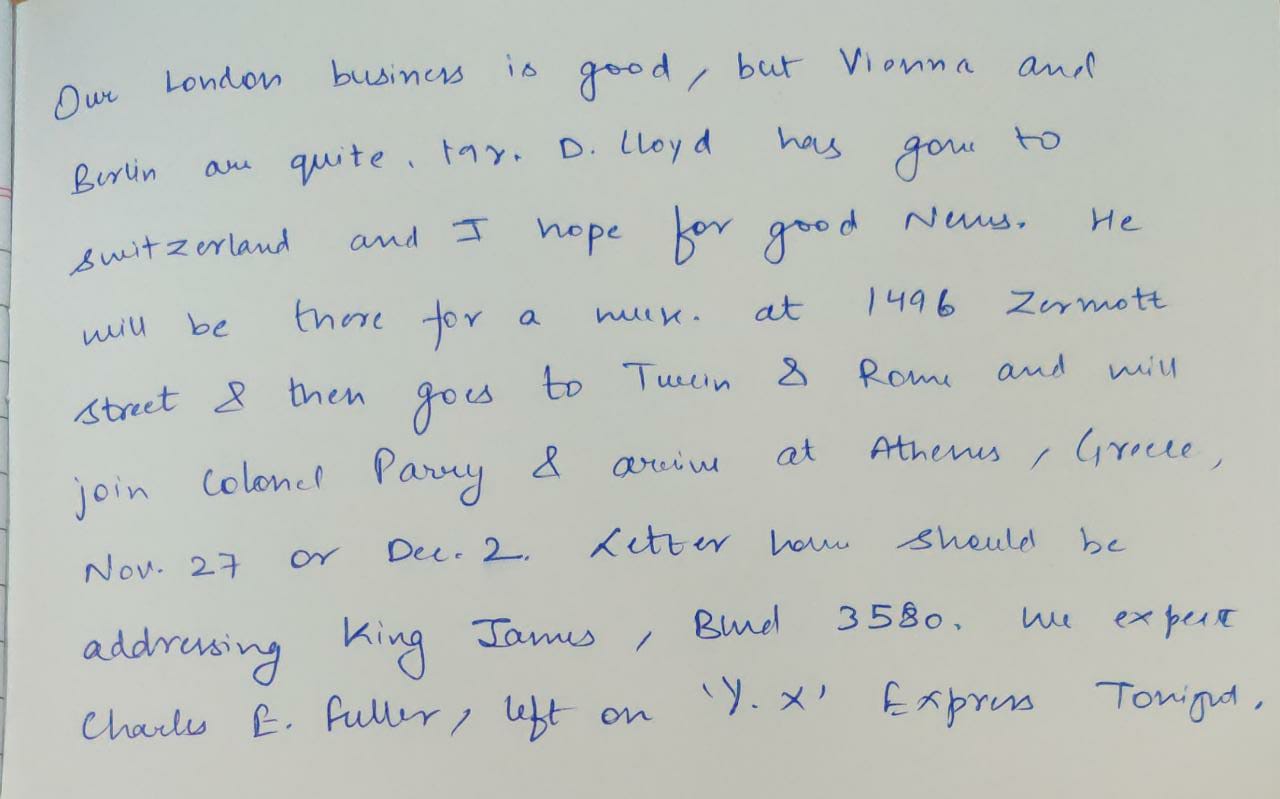 Our London business is good, but Vionna and
Berlin are quite. D. Lloyd has gone to
switzerland and I hope for good News. He
will be there for a week. at 1496 Zermott
street & then goes to Turin & Rome and will
join Colonel Parry & arrive at Athenes, Greece,
Nov. 27 or Dec. 2. Letter have should be
addressing King James, Blvd 3580. We expect
Charles E. Fuller, left on 'Y. X' Express